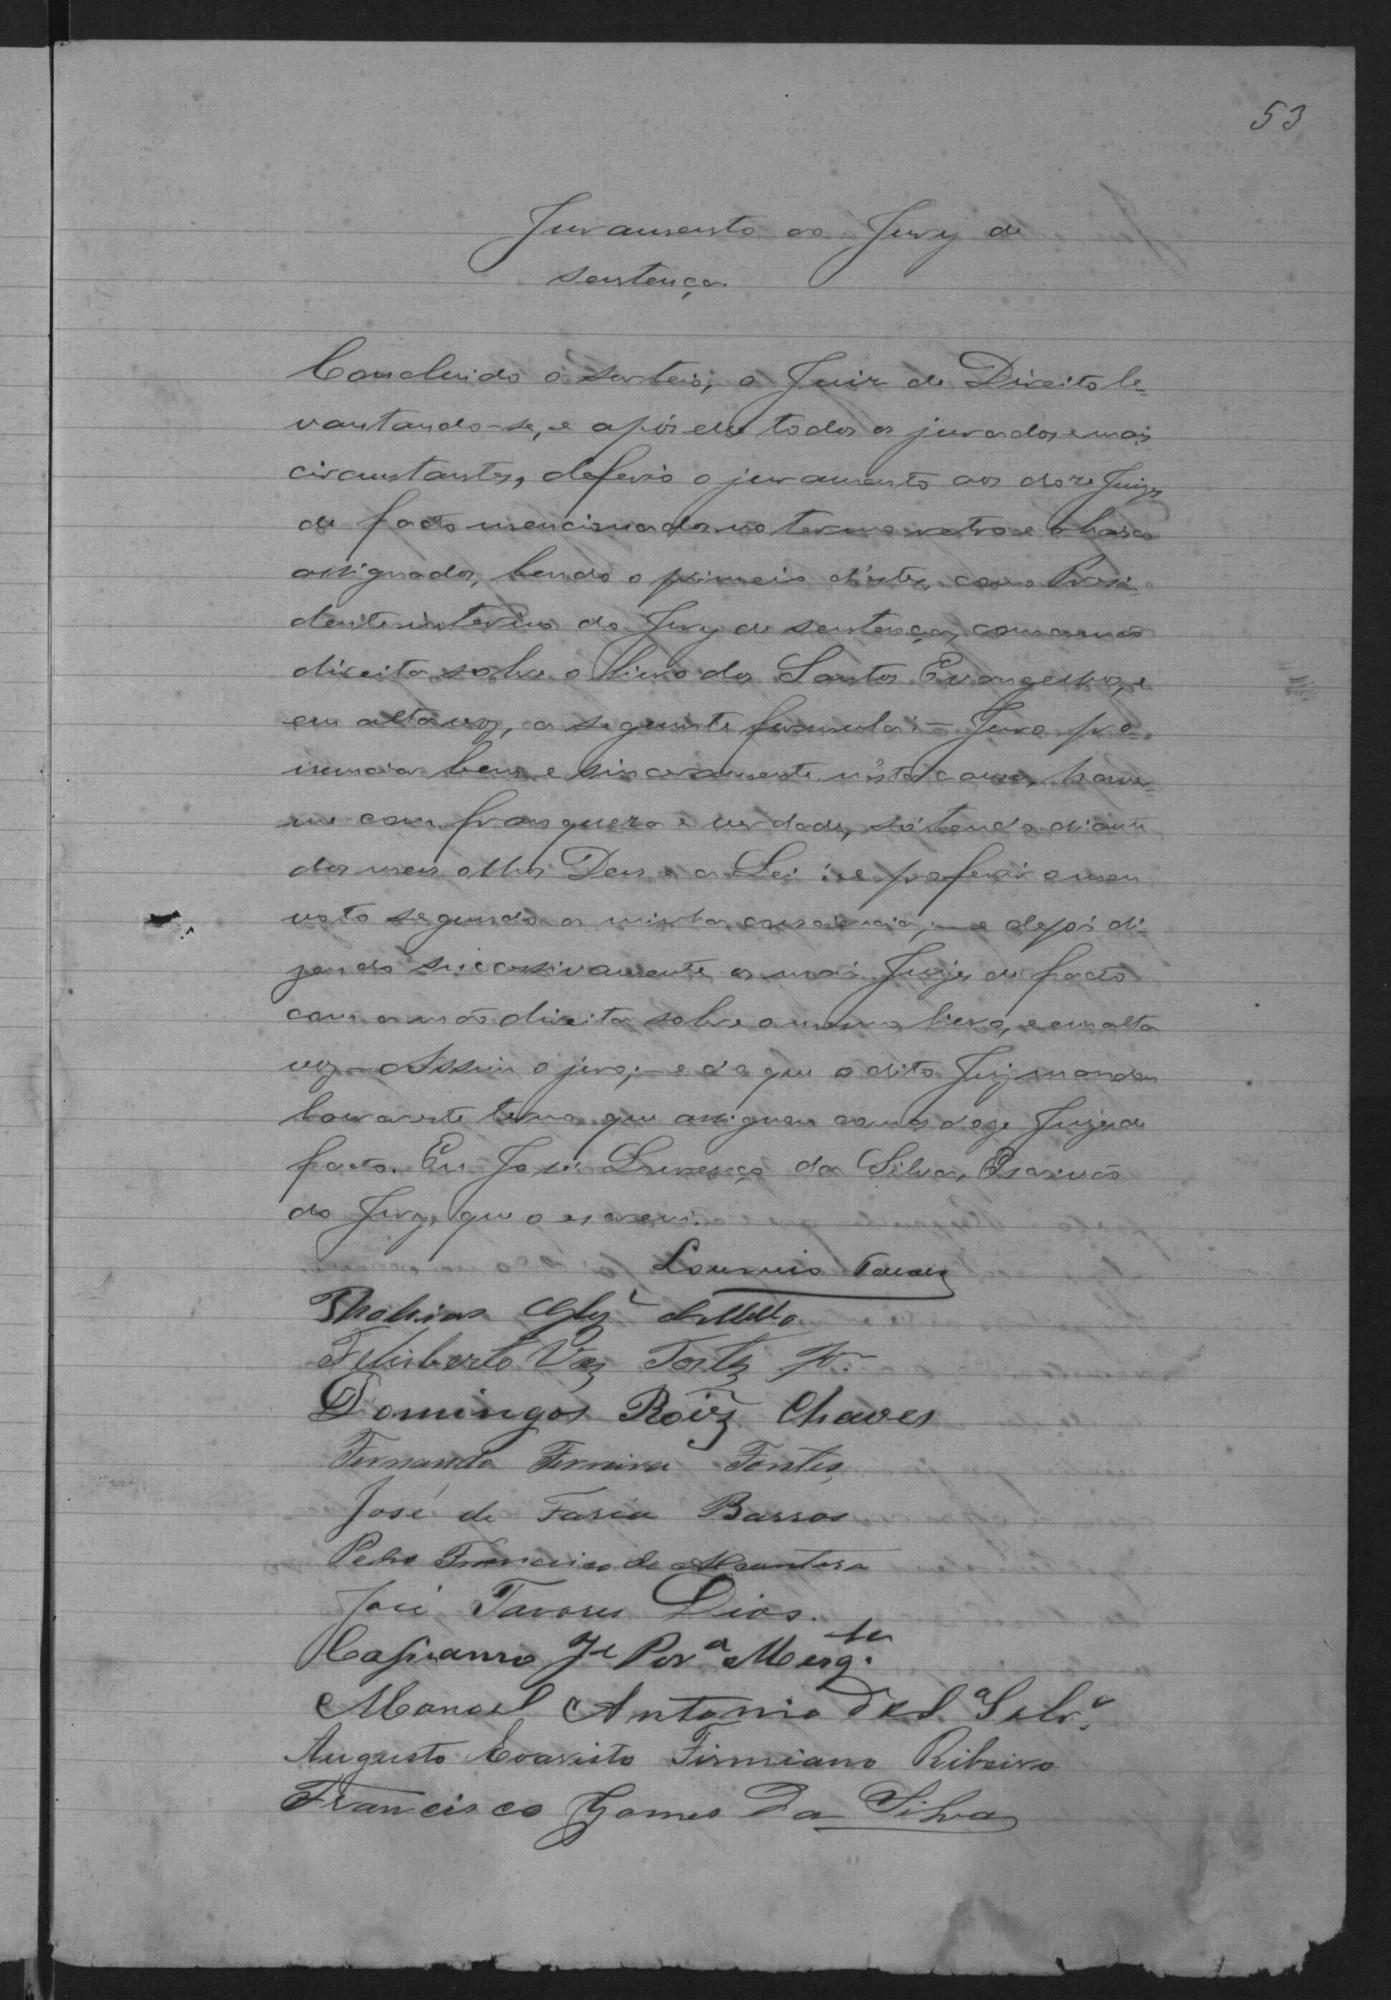 53
Juramento ao Jury de
sentença
Concluido o sorteio, o Juiz de Direito le-
vantando-se, e após elle todos os jurados e mais
circunstantes, deferio o juramento aos doze Juizes
de facto mencionados no termo retro e abaixo
assignados, lendo o primeiro d'estes, como Presi-
dente interino do Jury de sentença, com a mão
direita sobre o livro dos Santos Evangelhos, e
em alta voz, a seguinte formula: – Juro pro-
nunciar bem e sinceramente n'esta causa, haver-
me com franqueza e verdade, só tendo diante
dos meus olhos Deus e a Lei; e proferir o meu
voto segundo a minha consciencia; – e depois di-
zendo successivamente os mais Juizes de facto
com a mão direita sobre o mesmo livro, e em alta
voz – Assim o juro; – e do que o dito Juiz mandou
lavrar este termo que assignou com os doze Juizes de
facto. Eu José Lourenço da Silva, Escrivão
do Jury, que o escrevi.
Tavares
de Mello
Feliсberto Vaz Jor.
Domingos Roiz Chaves
Fernando Ferreira Fontes
José de Faria Barros
Pedro Francisco de Alcantara
José Tavares Dias.
Cassianno Je Pera
Manoel Antonio da Silva
Augusto Evaristo Firmiano Ribeiro
Francisco Gomes Da Silva